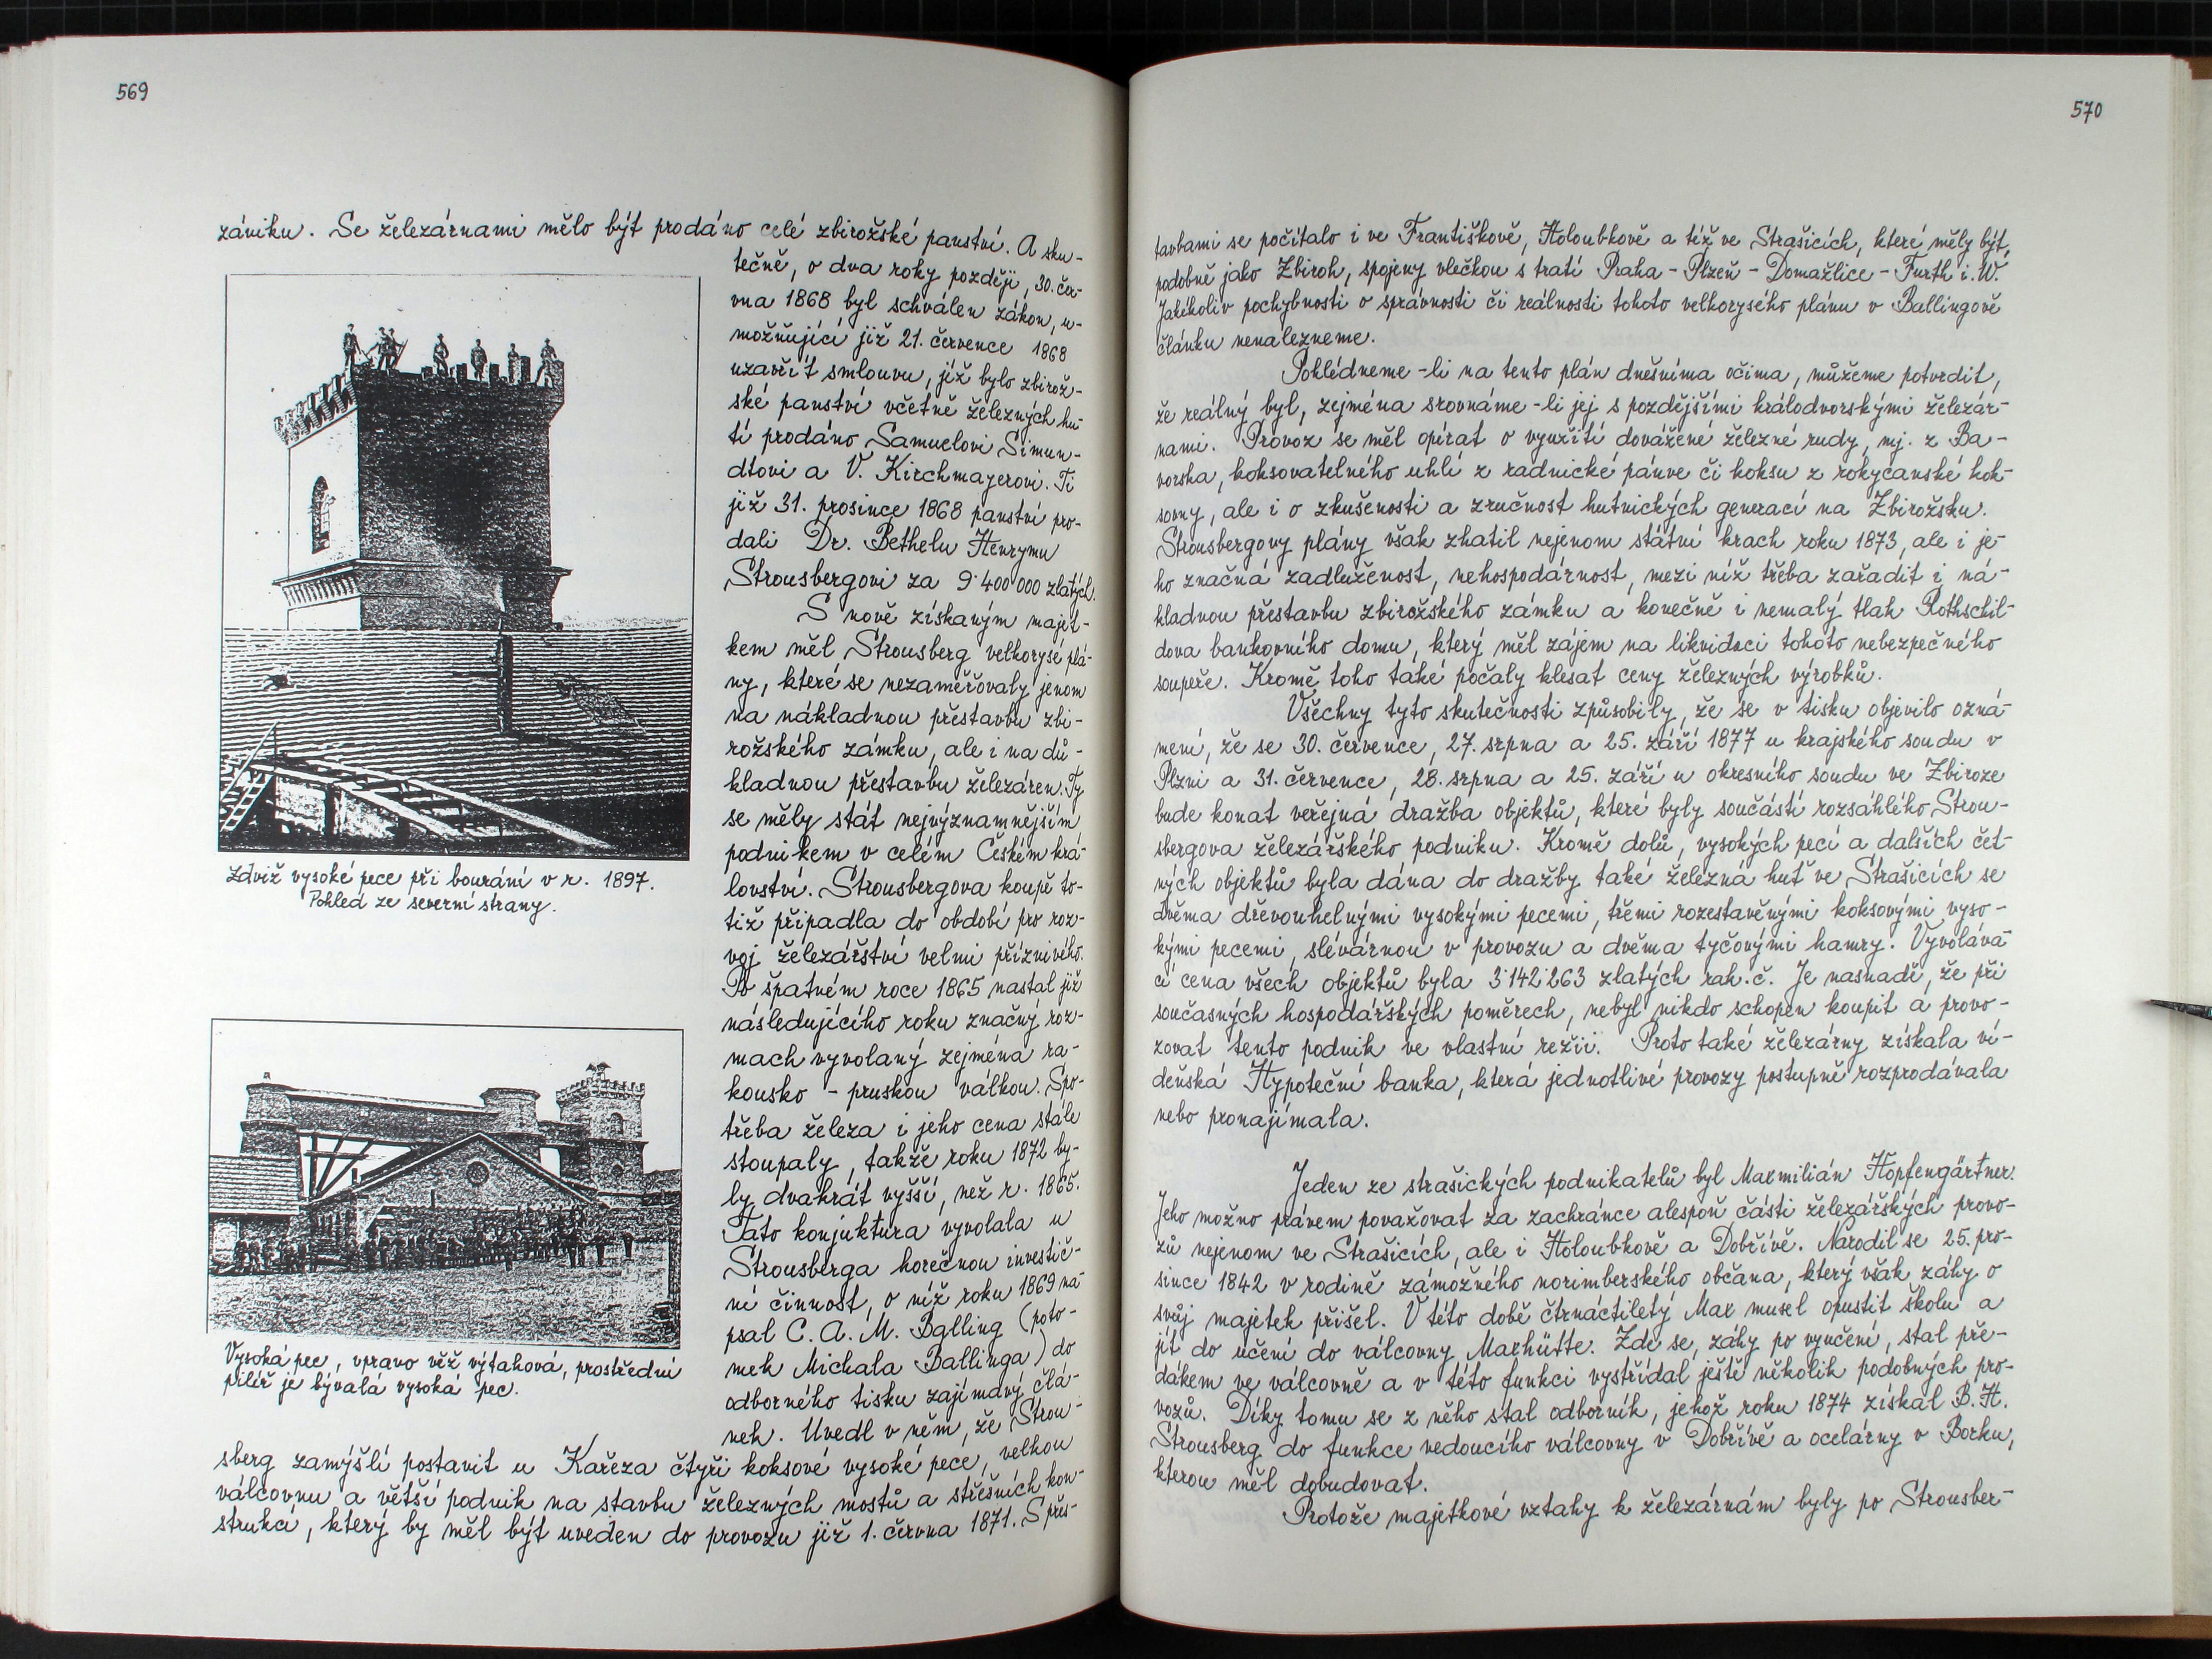 569
zániku. Se železárnami mělo být prodáno celé zbirožské panství. A sku-
tečně, o dva roky později, 30. čer-
vna 1868 byl schválen zákon, u-
možňující již 21. července 1868
uzavřít smlouvu, jíž bylo zbirož-
ské panství včetně železných hu-
tí prodáno Samuelovi Simun-
dtovi a V. Kirchmayerovi. Ti
již 31. prosince 1868 panství pro-
dali Dr. Bethelu Henrymu
Strousbergovi za 9˙400˙000 zlatých.
S nově získaným majet-
kem měl Strousberg velkorysé plá-
ny, které se nezaměřovaly jenom
na nákladnou přestavbu zbi-
rožského zámku, ale i na dů-
kladnou přestavbu železáren. Ty
se měly stát nejvýznamnějším
podnikem v celém Českém krá-
lovství. Strousbergova koupě to-
tiž připadla do období pro roz-
voj železářství velmi příznivého.
Po špatném roce 1865 nastal již
následujícího roku značný roz-
mach vyvolaný zejména ra-
kousko - pruskou válkou. Spo-
třeba železa i jeho cena stále
stoupaly, takže roku 1872 by-
ly dvakrát vyšší, než r. 1865.
Tato konjuktura vyvolala u
Strousberga horečnou investič-
ní činnost, o níž roku 1869 na-
psal C. A. M. Balling (poto-
mek Michala Ballinga) do
odborného tisku zajímavý člá-
nek. Uvedl v něm, že Strou-
sberg zamýšlí postavit u Kařeza čtyři koksové vysoké pece, velkou
válcovnu a větší podnik na stavbu železných mostů a střešních kon-
strukcí, který by měl být uveden do provozu již 1. června 1871. S přes-
Zdviž vysoké pece při bourání v r. 1897.
Pohled ze severní strany.
Vysoká pec, vpravo věž výtahová, prostřední
pilíř je bývalá vysoká pec.
570
tavbami se počítalo i ve Františkově, Holoubkově a též ve Strašicích, které měly být,
podobně jako Zbiroh, spojeny vlečkou s tratí Praha - Plzeň - Domažlice - Furth i. W.
Jakékoliv pochybnosti o správnosti či reálnosti tohoto velkorysého plánu v Ballingově
článku nenalezneme.
Pohlédneme-li na tento plán dnešníma očima, můžeme potvrdit,
že reálný byl, zejména srovnáme-li jej s pozdějšími králodvorskými železár-
nami. Provoz se měl opírat o využití dovážené železné rudy, mj. z Ba-
vorska, koksovatelného uhlí z radnické pánve či koksu z rokycanské kok-
sovny, ale i o zkušenosti a zručnost hutnických generací na Zbirožsku.
Strousbergovy plány však zhatil nejenom státní krach roku 1873, ale i je-
ho značná zadluženost, nehospodárnost, mezi níž třeba zařadit i ná-
kladnou přestavbu zbirožského zámku a konečně i nemalý tlak Rothschil-
dova bankovního domu, který měl zájem na likvidaci tohoto nebezpečného
soupeře. Kromě toho také počaly klesat ceny železných výrobků.
Všechny tyto skutečnosti způsobily, že se v tisku objevilo ozná-
mení, že se 30. července, 27. srpna a 25. září 1877 u krajského soudu v
Plzni a 31. července, 28. srpna a 25. září u okresního soudu ve Zbiroze
bude konat veřejná dražba objektů, které byly součástí rozsáhlého Strou-
sbergova železářského podniku. Kromě dolů, vysokých pecí a dalších čet-
ných objektů byla dána do dražby také železná huť ve Strašicích se
dvěma dřevouhelnými vysokými pecemi, třemi rozestavěnými koksovými vyso-
kými pecemi, slévárnou v provozu a dvěma tyčovými hamry. Vyvoláva-
cí cena všech objektů byla 3˙142˙263 zlatých rak. č. Je nasnadě, že při
současných hospodářských poměrech, nebyl nikdo schopen koupit a provo-
zovat tento podnik ve vlastní režii. Proto také železárny získala ví-
deňská Hypoteční banka, která jednotlivé provozy postupně rozprodávala
nebo pronajímala.
Jeden ze strašických podnikatelů byl Maxmilián Hopfengärtner.
Jeho možno právem považovat za zachránce alespoň části železářských provo-
zů nejenom ve Strašicích, ale i Holoubkově a Dobřívě. Narodil se 25. pro-
since 1842 v rodině zámožného norimberského občana, který však záhy o
svůj majetek přišel. V této době čtrnáctiletý Max musel opustit školu a
jít do učení do válcovny Maxhütte. Zde se, záhy po vyučení, stal pře-
dákem ve válcovně a v této funkci vystřídal ještě několik podobných pro-
vozů. Díky tomu se z něho stal odborník, jehož roku 1874 získal B. H.
Strousberg do funkce vedoucího válcovny v Dobřívě a ocelárny v Borku,
kterou měl dobudovat.
Protože majetkové vztahy k železárnám byly po Strousber-